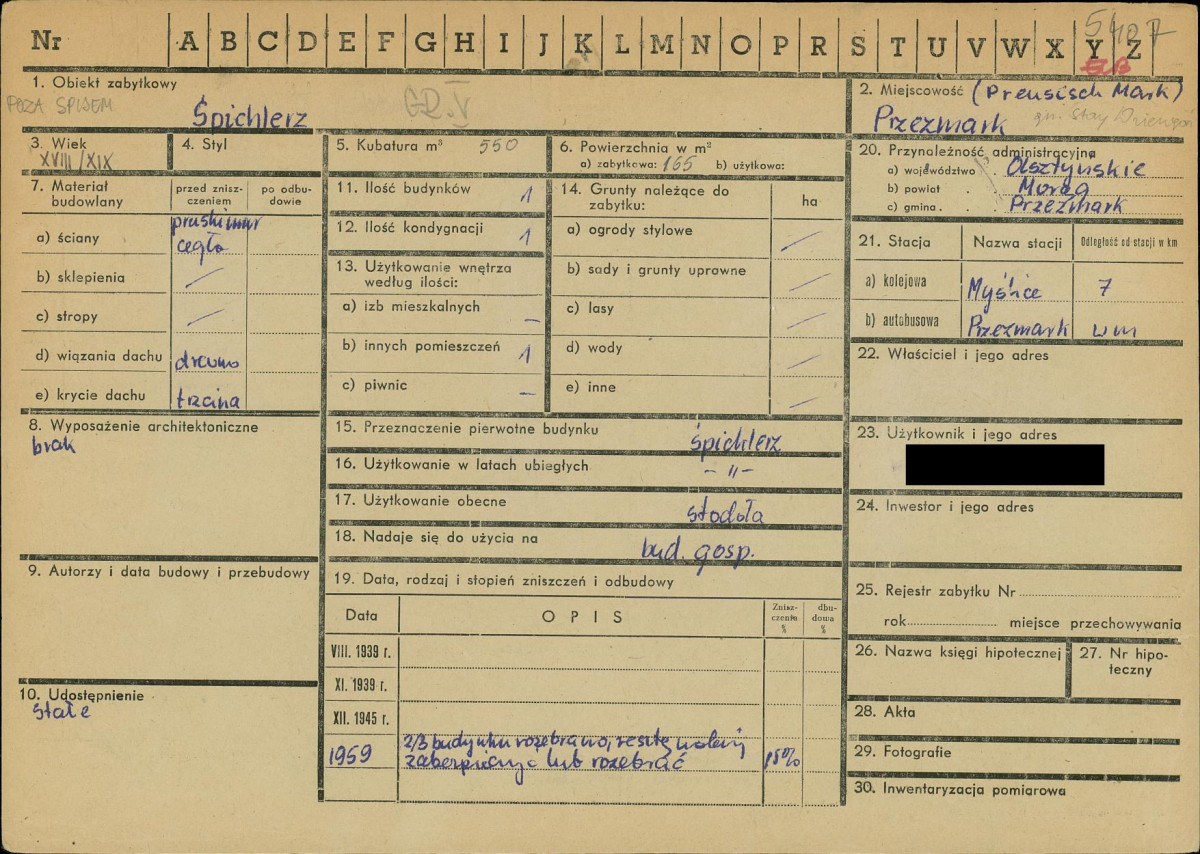 Nr A B C D E F G H I J K L M N O P R S T U V W X Y Z
5407
1. Obiekt zabytkowy
POZA SPISEM
GD. V
Śpichlerz
2. Miejscowość (Preusisch Mark)
Przezmark gm. Stary Dzierzgoń
3. Wiek
XVIII/XIX
4. Styl
5. Kubatura m³ 550
6. Powierzchnia w m²
a) zabytkowa: 165 b) użytkowa:
7. Materiał budowlany
przed znisz-
czeniem
po odbu-
dowie
a) ściany
pruski mur
cegła
b) sklepienia
c) stropy
d) wiązania dachu drewno
e) krycie dachu trzcina
8. Wyposażenie architektoniczne
brak
9. Autorzy i data budowy i przebudowy
10. Udostępnienie
stałe
11. Ilość budynków 1
12. Ilość kondygnacji 1
13. Użytkowanie wnętrza
według ilości:
a) izb mieszkalnych –
b) innych pomieszczeń 1
c) piwnic –
14. Grunty należące do
zabytku:
ha
a) ogrody stylowe
b) sady i grunty uprawne
c) lasy
d) wody
e) inne
15. Przeznaczenie pierwotne budynku śpichlerz
16. Użytkowanie w latach ubiegłych – " –
17. Użytkowanie obecne stodoła
18. Nadaje się do użycia na bud. gosp.
19. Data, rodzaj i stopień zniszczeń i odbudowy
Data
OPIS
Znisz-
czenia
%
dbu-
dowa
%
VIII. 1939 r.
XI. 1939 r.
XII. 1945 r.
1959
2/3 budynku rozebrano, resztę należy
zabezpieczyć lub rozebrać
15%
20. Przynależność administracyjna
a) województwo Olsztyńskie
b) powiat Morąg
c) gmina Przezmark
21. Stacja Nazwa stacji Odległość od stacji w km
a) kolejowa Myślice 7
b) autobusowa Przezmark w m
22. Właściciel i jego adres
23. Użytkownik i jego adres
24. Inwestor i jego adres
25. Rejestr zabytku Nr
rok miejsce przechowywania
26. Nazwa księgi hipotecznej
27. Nr hipo-
teczny
28. Akta
29. Fotografie
30. Inwentaryzacja pomiarowa